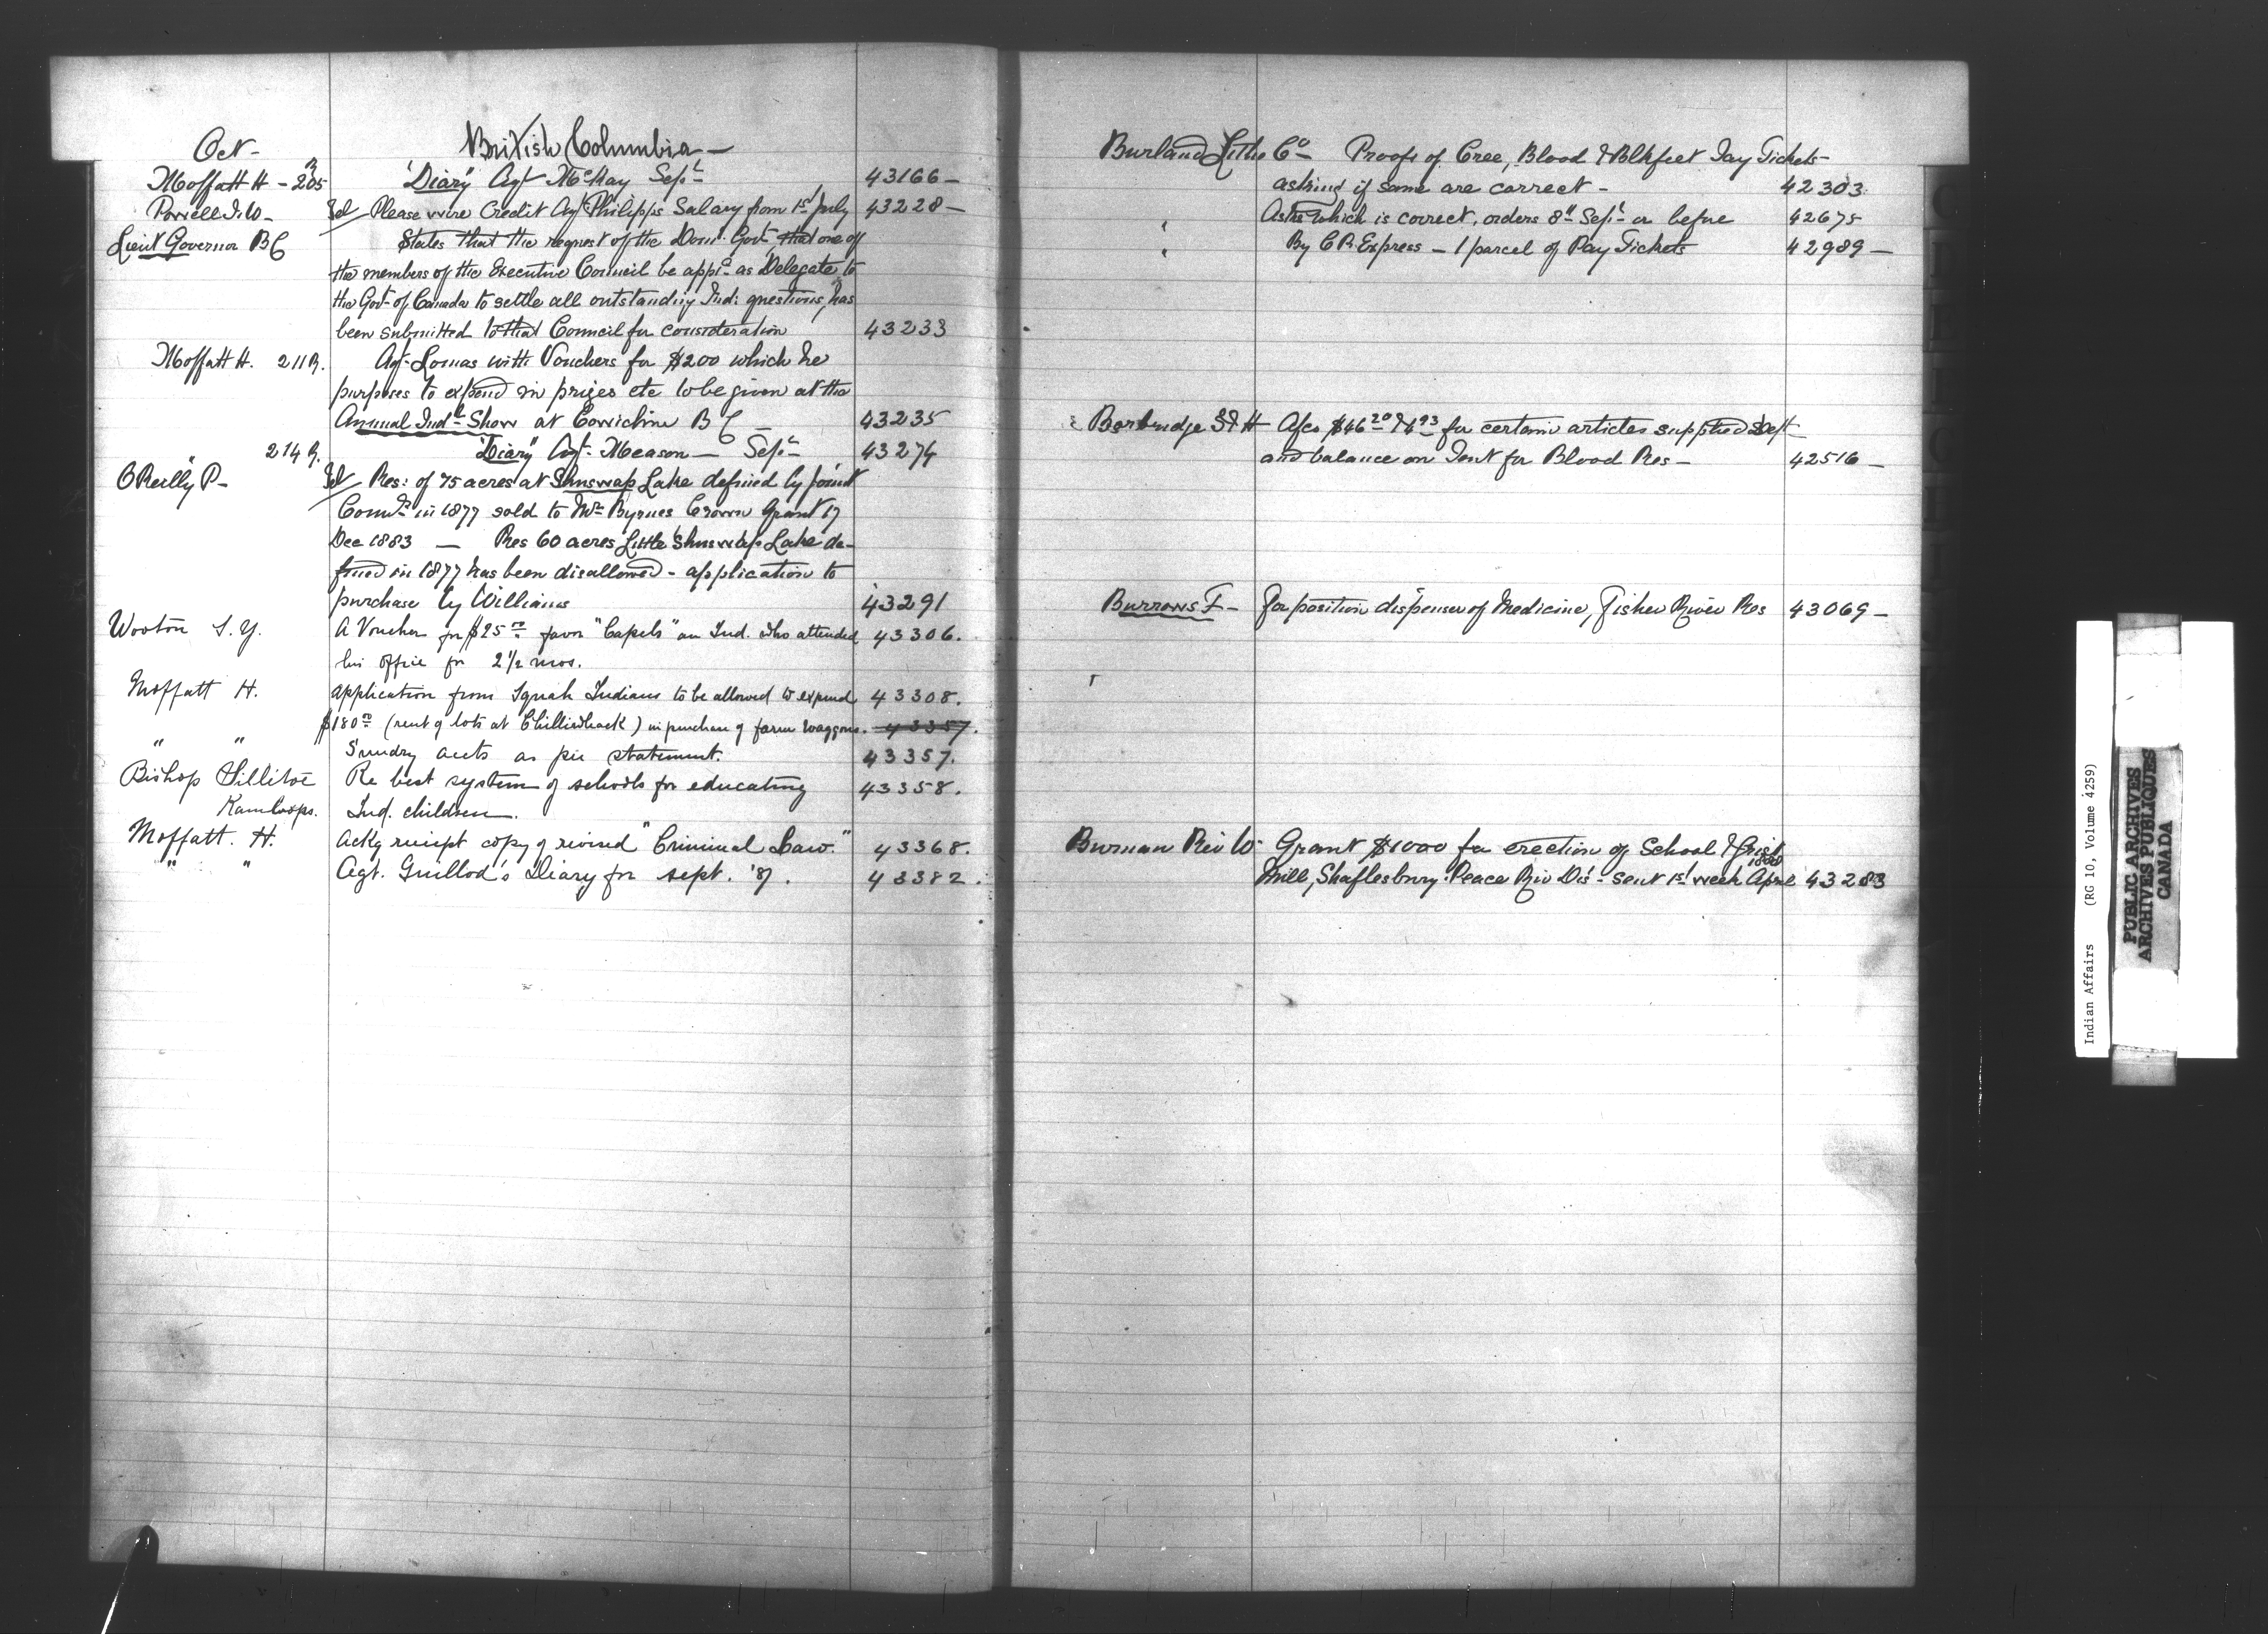 Oct - British Columbia -
Moffatt H - 205 R "Diary" Agt McKay Sept 43166 -
Powell I.W - Tel Please wire Credit Agt Philipps Salary from 1st July 43228 -
Lieut Governor BC States that the request of the Domn Govt, that one of
the members of the Executive Council be appd as Delegate to
the Govt of Canada to settle all outstanding Ind: questions, has
been submitted to that Council for consideration 43233
Moffatt H. 211 R. Agt Lomas with Vouchers for $200 which he
purposes to expend in prizes etc to be given at the
Annual Indl Show at Cowichin BC - 43235
" 214 R. "Diary" Agt Meason - Sept 43274
O'Reilly P - Tel Res: of 75 acres at Shuswap Lake defined by Joint
Commrs in 1877 sold to Mrs Byrnes Crown Grant 17
Dec 1883 - Res 60 acres Little Shuswap Lake de-
fined in 1877 has been disallowed - application to
purchase by Williams 43291
Wooton S.Y. A Voucher for $25 00 favor "Capels" an Ind. who attended 43306.
his office for 2 1/2 mos.
Moffatt H. application from Squah Indians to be allowed to expend 43308.
$180 00 (rent of lots at Chilliwhack) in purchase of farm waggons. 43357.
" " Sundry accts as per statement. 43357.
Bishop Sillitoe Re best system of schools for educating 43358.
Kamloops. Ind. children.
Moffatt. H. Ackg receipt copy of revised "Criminal Law." 43368.
" " Agt. Guillod's Diary for sept. '87. 43382.
Burland Litho Co - Proofs of Cree, Blood & Blkfeet Pay Tickets -
asking if same are correct - 42303
" Asks which is correct, orders 8th Sept or before 42675
" By C.P. Express - 1 parcel of Pay Tickets 42989 -
Burbridge S & H - Afcs $46 20 & 4 93 for certain articles supplied Dept
and balance on Tent for Blood Res - 42516 -
Burrows F - For position dispenser of Medicine, Fisher River Res 43069 -
Burman Rev W. Grant $1000 for erection of School & Grist
1888
Mill, Shaftesbury Peace Riv Dis - sent 1st week April 43283
Indian Affairs (RG 10, Volume 4259)
PUBLIC ARCHIVES
ARCHIVES PUBLIQUES
CANADA